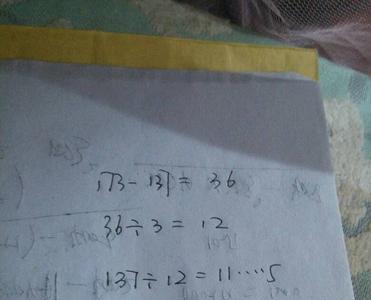 173-137=36
36÷3=12
137÷12=11····5